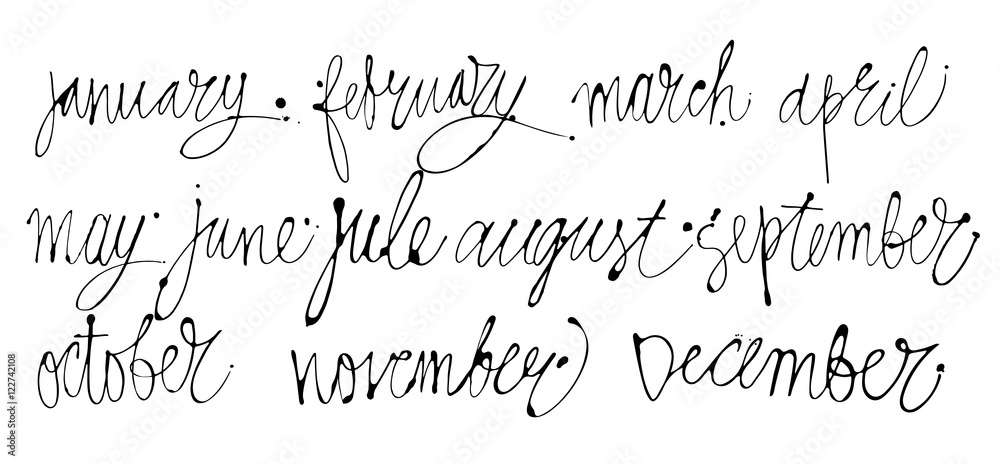 january february march april
may june jule august september
october november December
Adobe Stock | #122742108